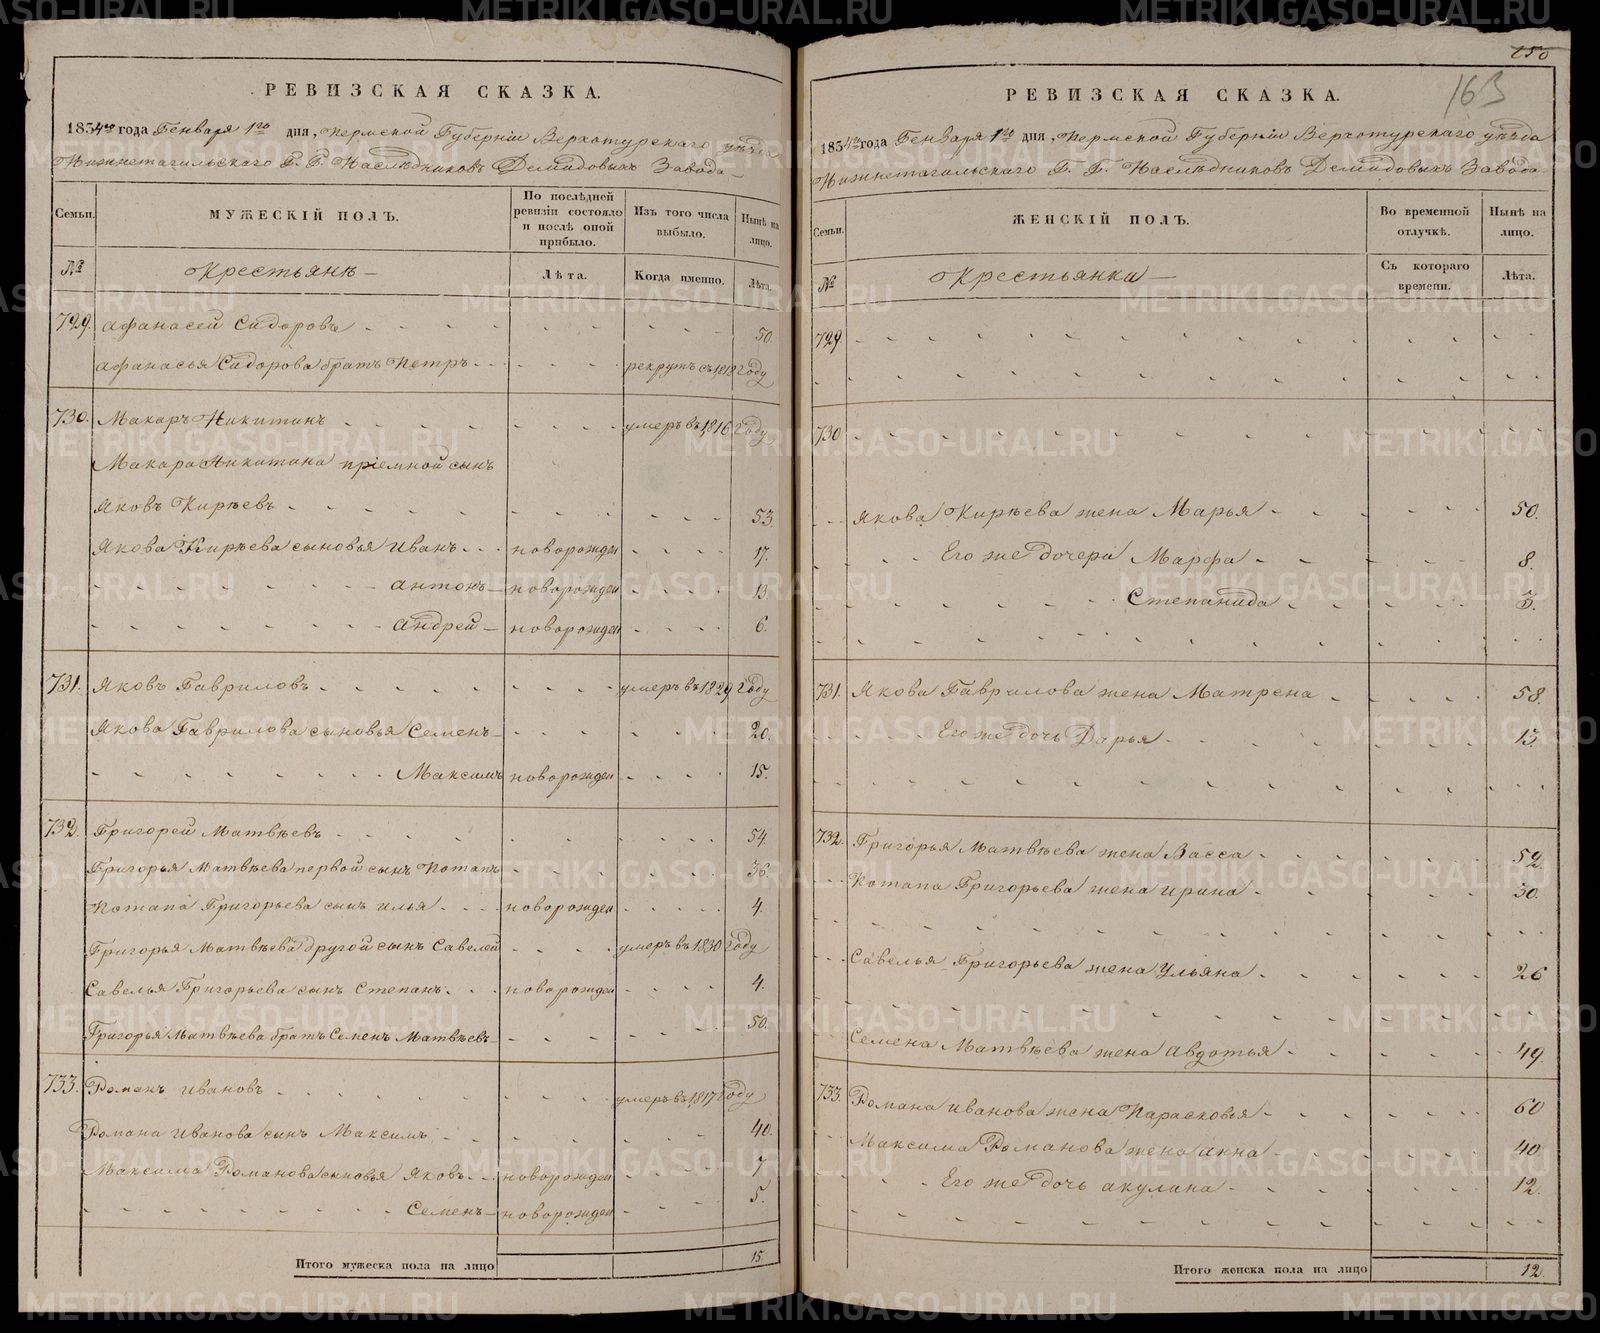 РЕВИЗСКАЯ СКАЗКА.
1834го года Генваря 1го дня, Пермской Губернiи Верхотурскаго уѣзда
Нижнетагильскаго Г. Г. Наслѣдниковъ Демидовыхъ Завода
Семьи.
МУЖЕСКIЙ ПОЛЪ.
По послѣдней ревизiи состояло и послѣ оной прибыло.
Изъ того числа выбыло.
Нынѣ на лицо.
№
Крестьянѣ
Лѣта.
Когда именно.
Лѣта.
729. Афанасей Сидоровъ 50.
Афанасья Сидорова братъ Петръ рекрутъ съ 1818 году
730. Макаръ Никитинъ умеръ въ 1816 году
Макара Никитина прiемной сынъ
Яковъ Кирѣевъ 53.
Якова Кирѣева сыновья Иванъ новорожден 17.
Антонъ новорожден 13.
Андрей новорожден 6.
731. Яковъ Гавриловъ умеръ въ 1829 году
Якова Гаврилова сыновья Семенъ 20.
Максимъ новорожден 15.
732. Григорей Матвѣевъ 54.
Григорья Матвѣева первой сынъ Потапъ 36.
Потапа Григорьева сынъ Илья новорожден 4.
Григорья Матвѣева другой сынъ Савелей умеръ въ 1830 году
Савелья Григорьева сынъ Степанъ новорожден 4.
Григорья Матвѣева братъ Семенъ Матвѣевъ 50.
733. Романъ Ивановъ умеръ въ 1817 году
Романа Иванова сынъ Максимъ 40.
Максима Романова сыновья Яковъ новорожден 7
Семенъ новорожден 5.
Итого мужеска пола на лицо 15.
150
163
РЕВИЗСКАЯ СКАЗКА.
1834го года Генваря 1го дня, Пермской Губернiи Верхотурскаго уѣзда
Нижнетагильскаго Г. Г. Наслѣдниковъ Демидовыхъ Завода
Семьи.
ЖЕНСКIЙ ПОЛЪ.
Во временной отлучкѣ.
Нынѣ на лицо.
№
Крестьянки
Съ котораго времени.
Лѣта.
729.
730
Якова Кирѣева жена Марья 50.
Его же дочери Марфа 8.
Степанида 3.
731. Якова Гаврилова жена Матрена 58.
Его же дочь Дарья 13.
732. Григорья Матвѣева жена Васса 52.
Потапа Григорьева жена Ирина 30.
Савелья Григорьева жена Ульяна 26
Семена Матвѣева жена Авдотья 49.
733. Романа Иванова жена Парасковья 60
Максима Романова жена Анна 40
Его же дочь Акулина 12.
Итого женска пола на лицо 12.
METRIKI.GASO-URAL.RU